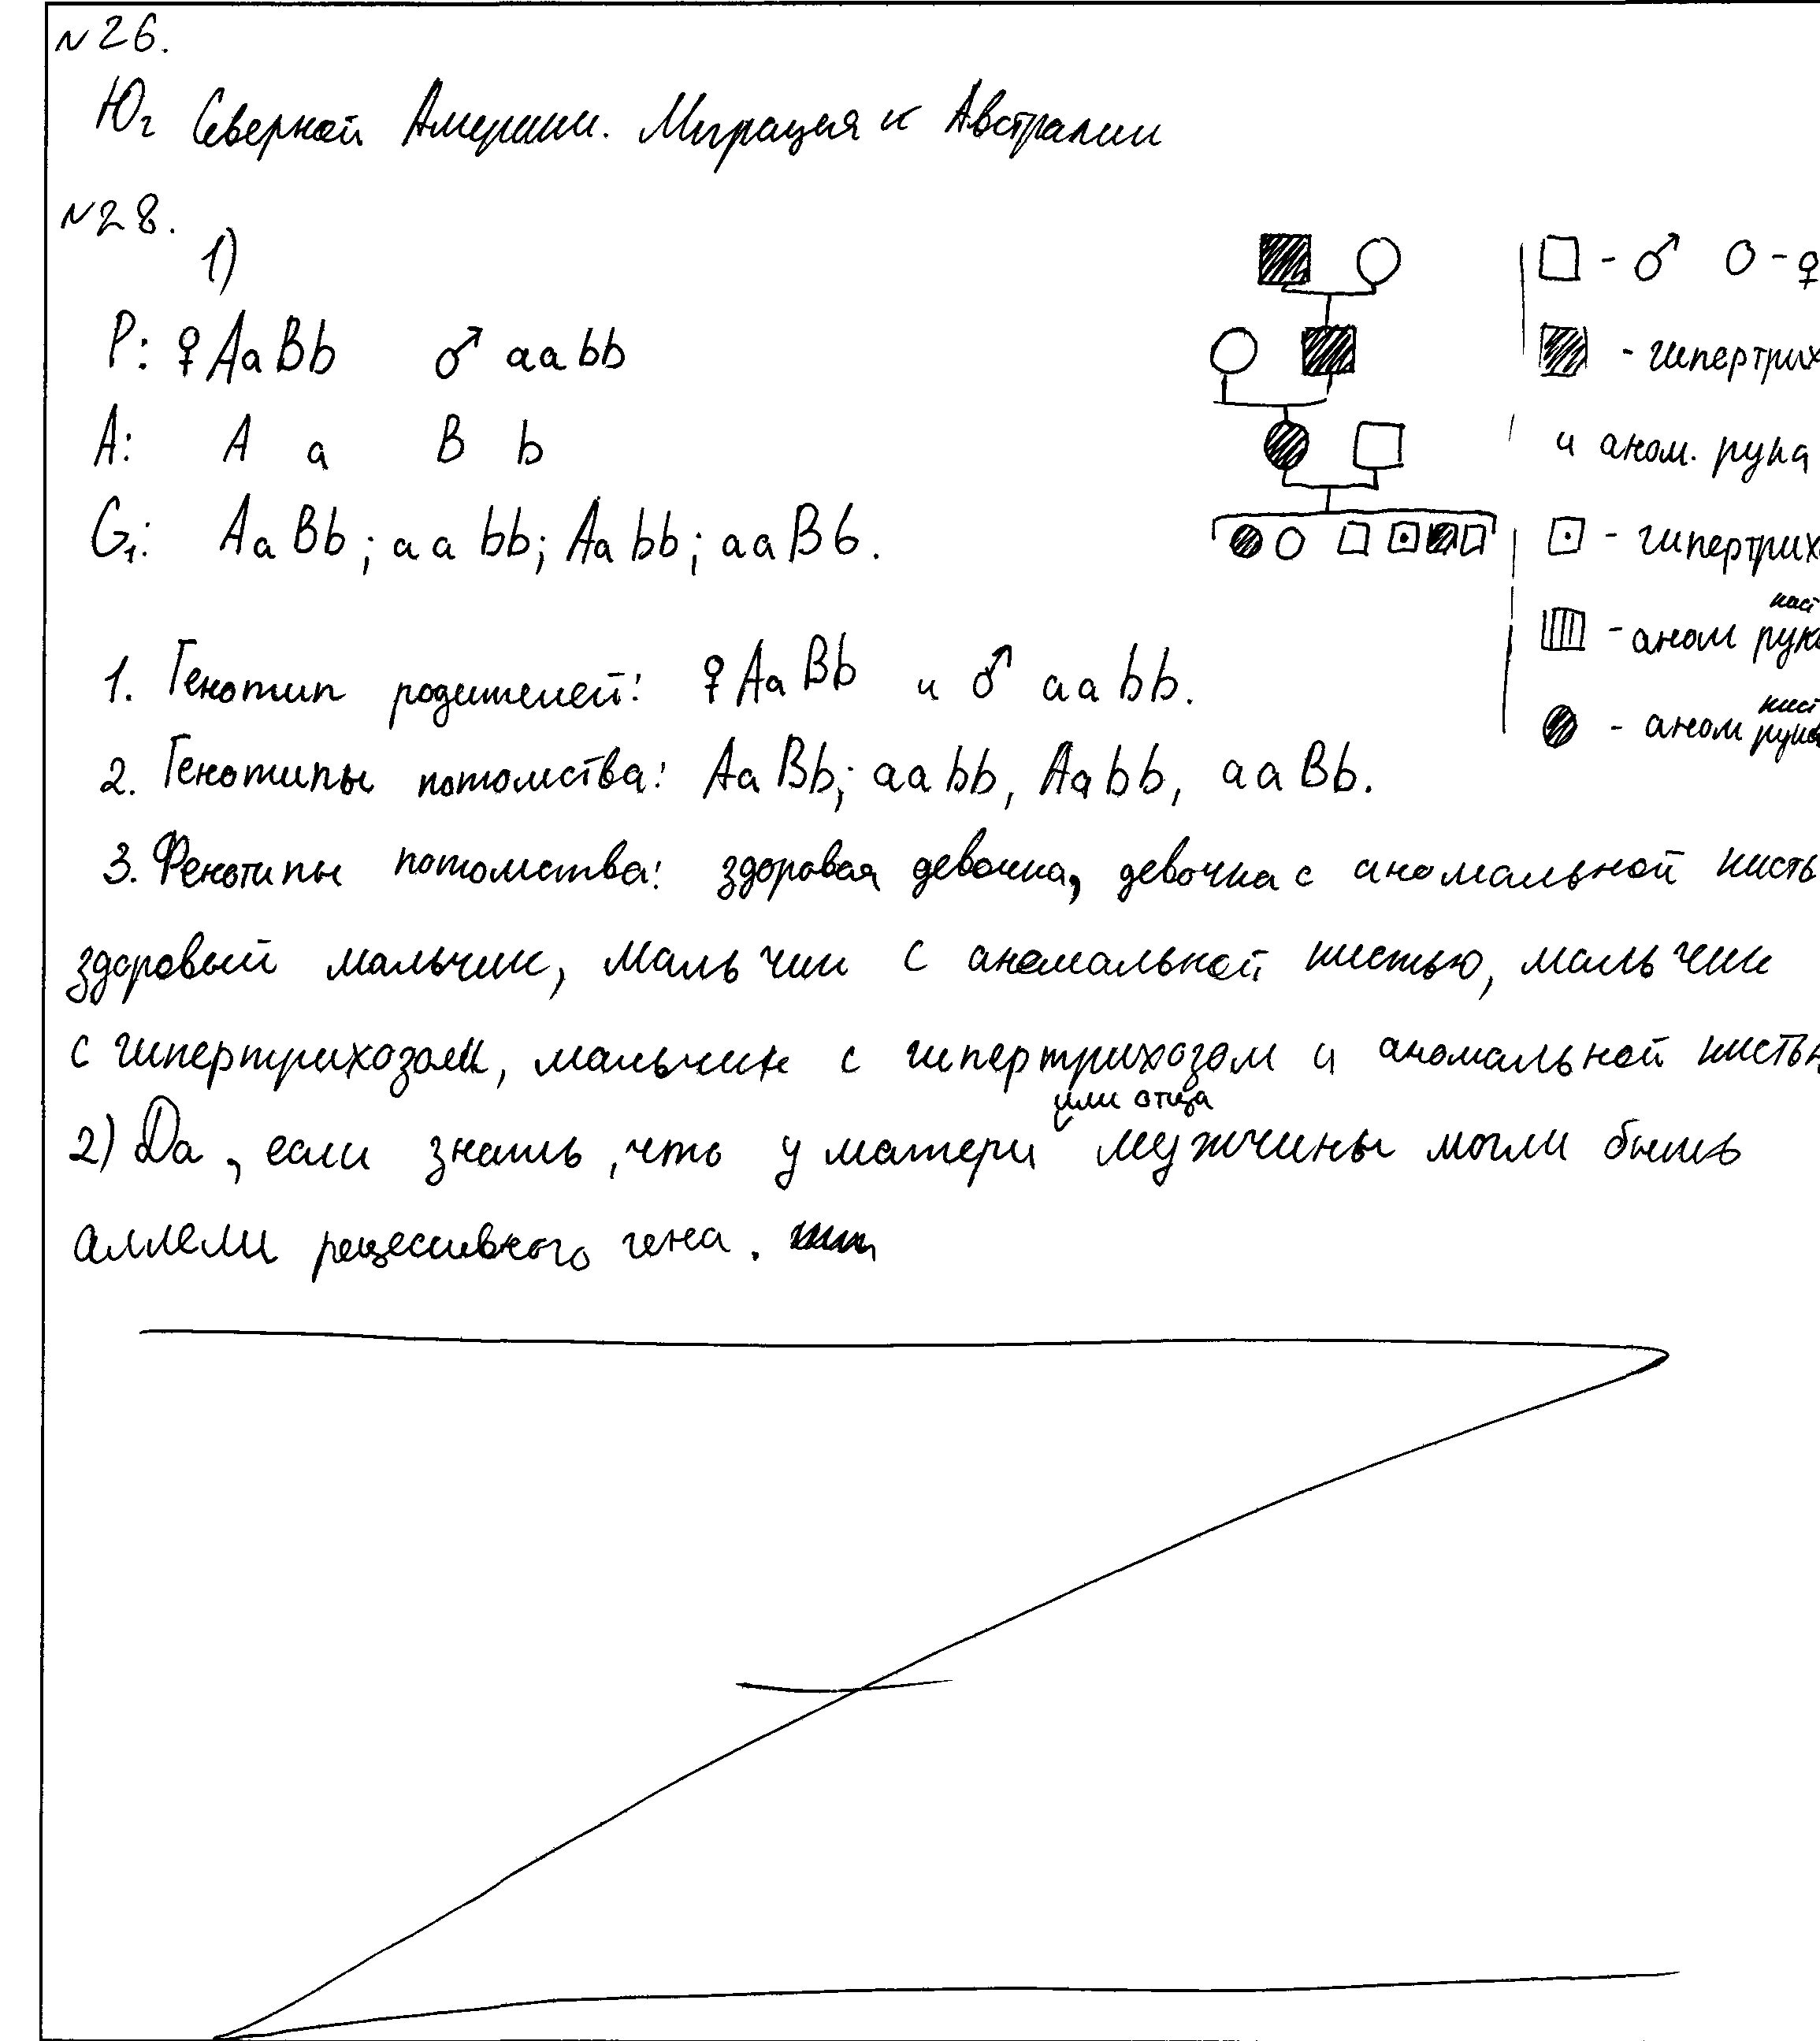 №26.
Юг Северной Америки. Миграция к Австралии
№28.
1)
P: ♀ AaBb ♂ aabb
A: A a B b
G₁: AaBb; aabb; Aabb; aaBb.
□ - ♂ ○ - ♀
- гипертрих
и аном. рука
- гипертрих
- аном рук
- аном рука
1. Генотип родителей: ♀ AaBb и ♂ aabb.
2. Генотипы потомства: AaBb; aabb, Aabb, aaBb.
3. Фенотипы потомства: здоровая девочка, девочка с аномальной кисть
здоровый мальчик, мальчик с аномальной кистью, мальчик
с гипертрихозом, мальчик с гипертрихозом и аномальной кисть
2) Да, если знать, что у матери или отца мужчины могли быть
аллели рецессивного гена.